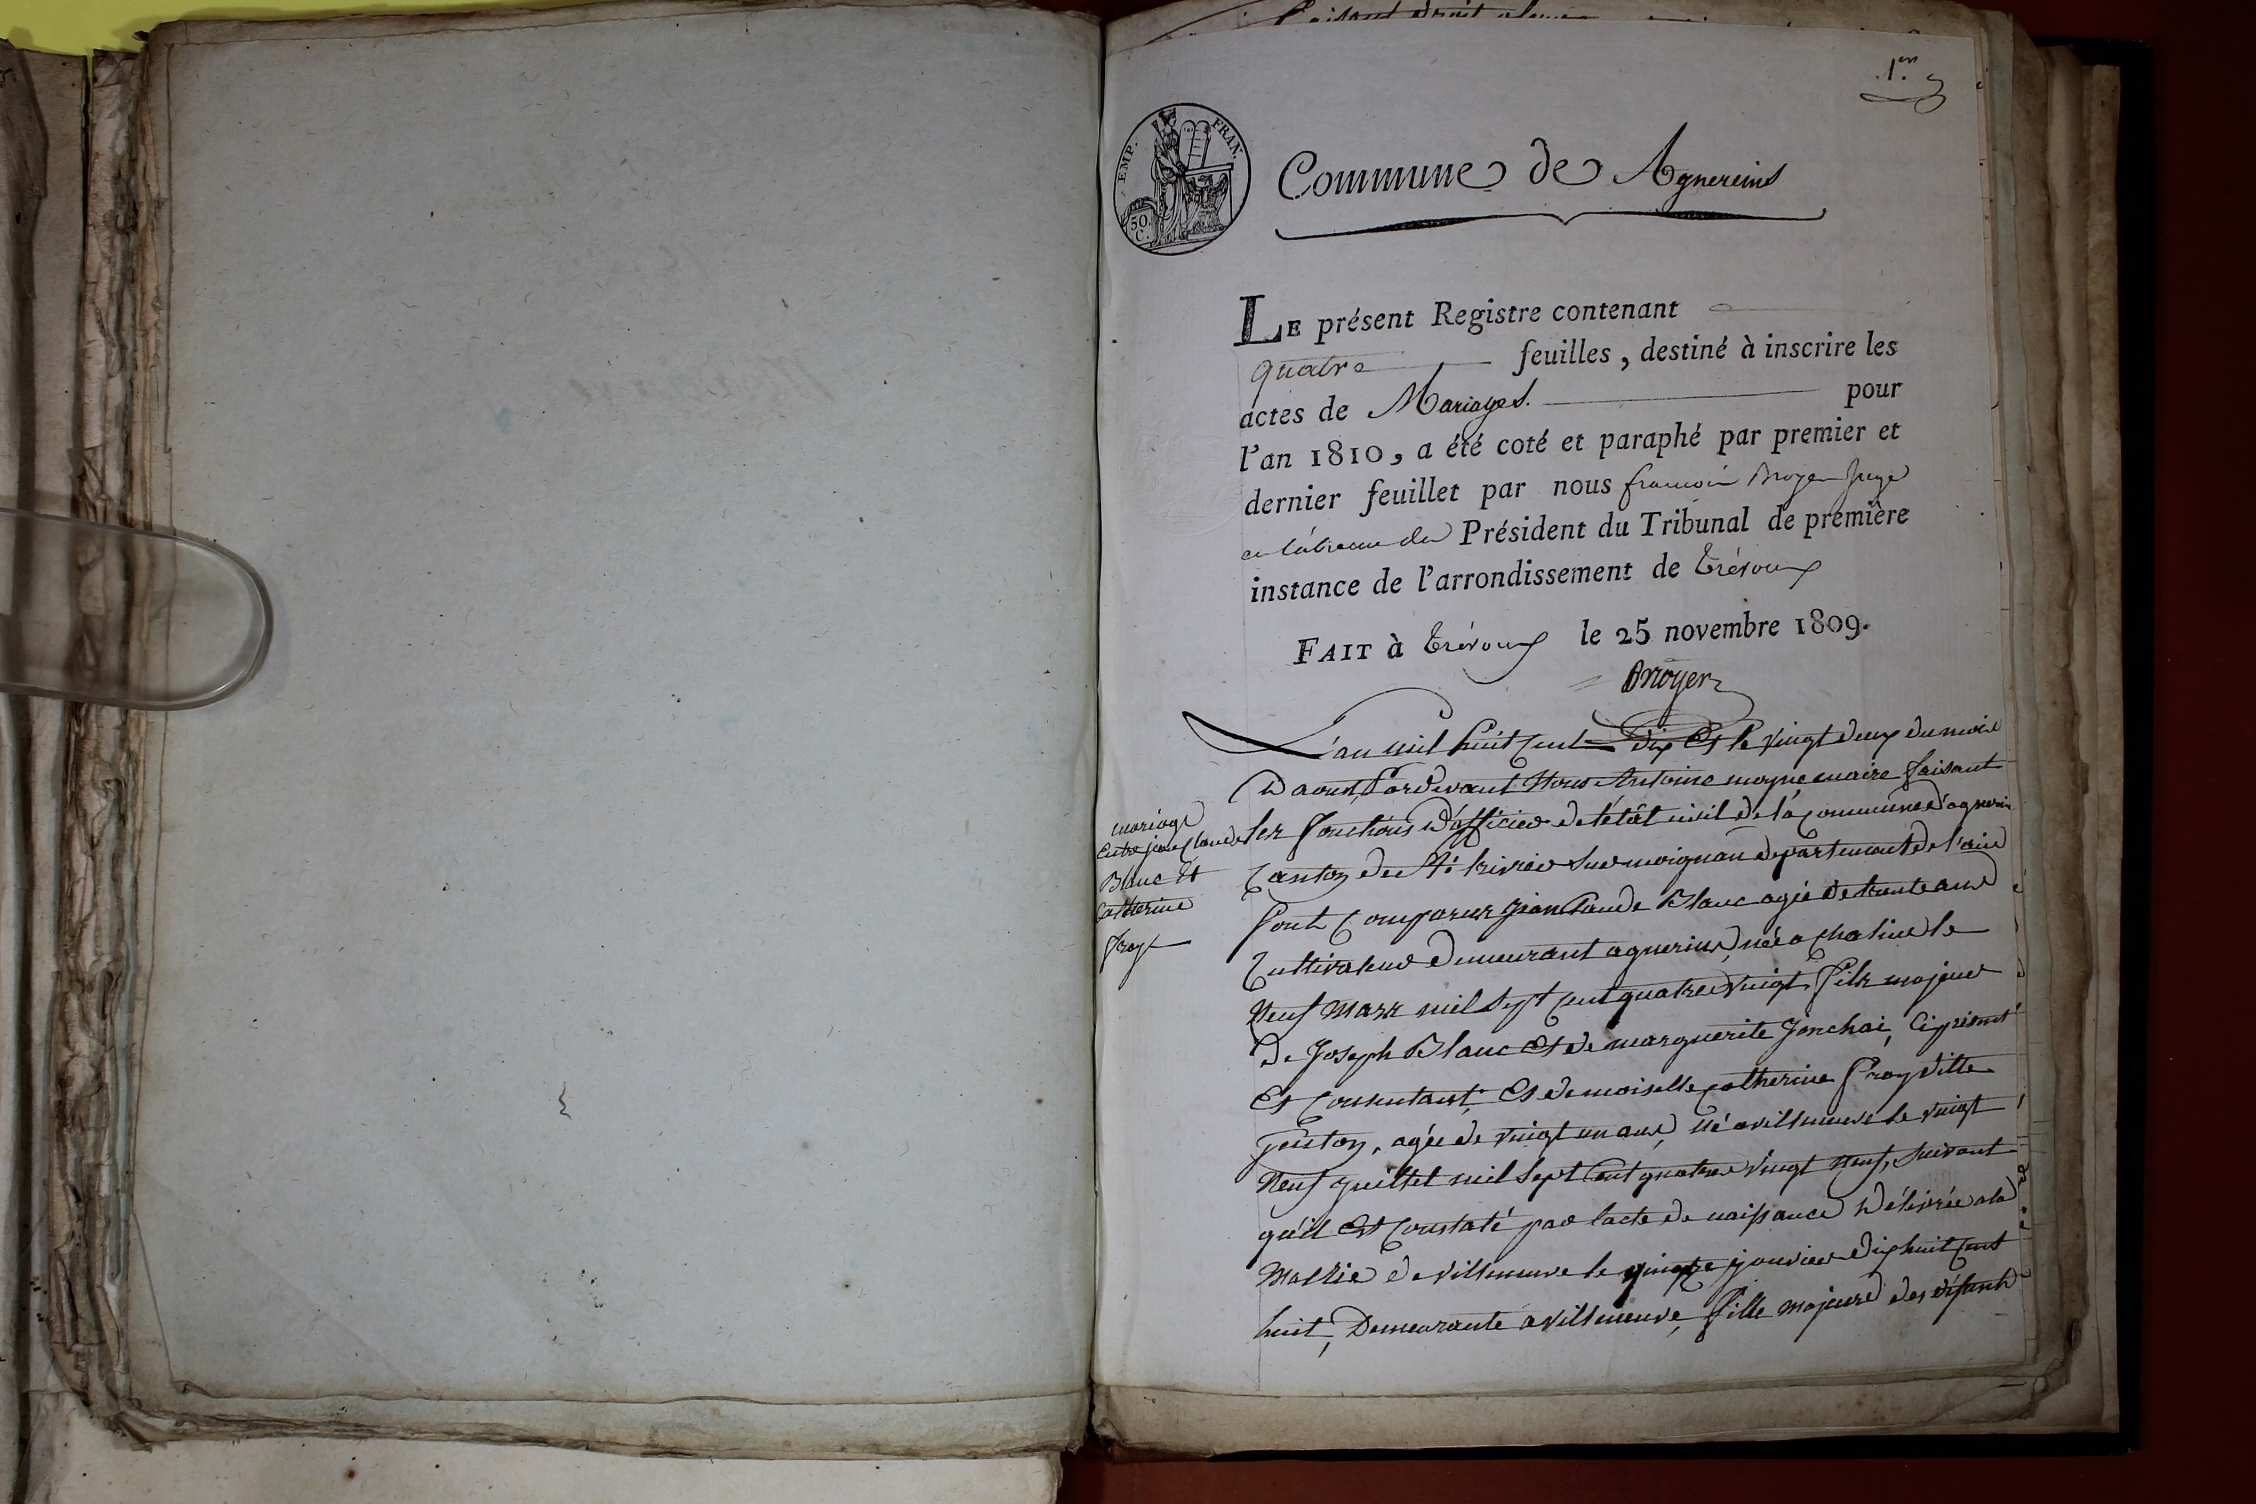 1.er
EMP. FRAN.
50
C.
Commune de Agnereins
LE présent Registre contenant
quatre feuilles, destiné à inscrire les
actes de Mariages. pour
l'an 1810, a été coté et paraphé par premier et
dernier feuillet par nous françois Broyer Juge
Président du Tribunal de première
instance de l'arrondissement de trévoux
FAIT à trévoux le 25 novembre 1809.
Broyer
L'an mil huit cent dix Et le vingt deux du mois
D'aoust, Pardevant Nous Antoine moyne maire faisant
les fonctions D'officier de l'état civil de la Commune d'agnerins
Canton de St trivier sur moignan département de l'ain
sont Comparus Jean Claude Blanc agée de trente ans
Cultivateur demeurant agnerins, née a Chaleins le
Neuf Mars mil sept cent quatre vingt, fils majeur
De Joseph Blanc et de marguerite Jonchai, Ci présent
Et Consentant, Et demoiselle Catherine Proy ditte
agée de vingt un ans, né a villeneuve le vingt
Neuf juillet mil sept cent quatre vingt Neuf, suivant
qu'il Est Constaté par l'acte de naissance Délivrée a la
Mairie de villeneuve le janvier dix huit cent
huit, Demeurante a villeneuve, fille majeure des défunts
mariage
Entre jean Claude
Blanc Et
Catherine
Proy